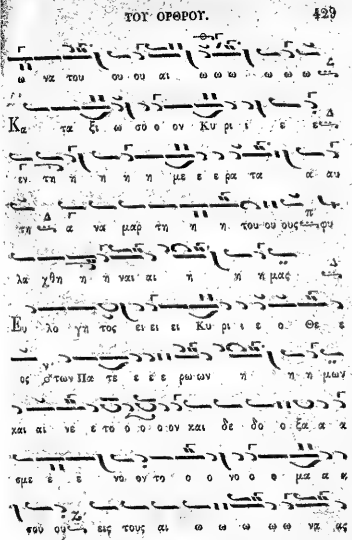 ΤΟΥ ΟΡΘΡΟΥ. 429
ω να του ου ου αι ω ω ω ω ω ω
Κα τα ξι ω σο ο ον Κυ ρι ι ε ε
εν τη η η η η με ε ε ρα τα α αυ
τη α να μαρ τη η η του ου ους φυ
λα χθη η η ναι αι η η η μας
Ευ λο γη τος ει ει ει Κυ ρι ι ε ο Θε ε
ος των Πα τε ε ε ε ρω ων η η η μων
και αι νε ε το ο ο ο ον και δε δο ο ξα α α
σμε ε ε νο ον το ο ο νο ο ο μα α α
σου ου εις τους αι ω ω ω ω ω να ας